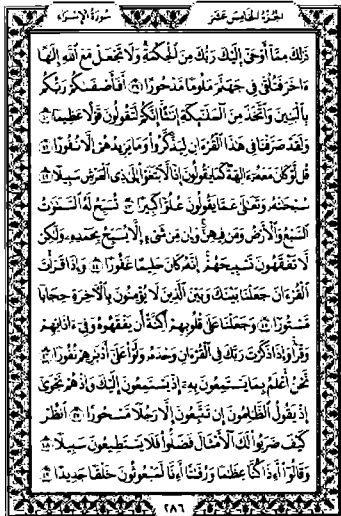 الجزء الخامس عشر
سورة الإسراء
ذَٰلِكَ مِمَّا أَوْحَىٰ إِلَيْكَ رَبُّكَ مِنَ الْحِكْمَةِ وَلَا تَجْعَلْ مَعَ اللَّهِ إِلَٰهًا
ءَاخَرَ فَتُلْقَىٰ فِي جَهَنَّمَ مَلُومًا مَّدْحُورًا ٣٩ أَفَأَصْفَىٰكُمْ رَبُّكُم
بِالْبَنِينَ وَاتَّخَذَ مِنَ الْمَلَٰئِكَةِ إِنَٰثًا إِنَّكُمْ لَتَقُولُونَ قَوْلًا عَظِيمًا ٤٠
وَلَقَدْ صَرَّفْنَا فِي هَٰذَا الْقُرْءَانِ لِيَذَّكَّرُوا وَمَا يَزِيدُهُمْ إِلَّا نُفُورًا ٤١
قُل لَّوْ كَانَ مَعَهُ ءَالِهَةٌ كَمَا يَقُولُونَ إِذًا لَّابْتَغَوْا إِلَىٰ ذِي الْعَرْشِ سَبِيلًا ٤٢
سُبْحَٰنَهُ وَتَعَٰلَىٰ عَمَّا يَقُولُونَ عُلُوًّا كَبِيرًا ٤٣ تُسَبِّحُ لَهُ السَّمَٰوَٰتُ
السَّبْعُ وَالْأَرْضُ وَمَن فِيهِنَّ وَإِن مِّن شَيْءٍ إِلَّا يُسَبِّحُ بِحَمْدِهِ وَلَٰكِن
لَّا تَفْقَهُونَ تَسْبِيحَهُمْ إِنَّهُ كَانَ حَلِيمًا غَفُورًا ٤٤ وَإِذَا قَرَأْتَ
الْقُرْءَانَ جَعَلْنَا بَيْنَكَ وَبَيْنَ الَّذِينَ لَا يُؤْمِنُونَ بِالْءَاخِرَةِ حِجَابًا
مَّسْتُورًا ٤٥ وَجَعَلْنَا عَلَىٰ قُلُوبِهِمْ أَكِنَّةً أَن يَفْقَهُوهُ وَفِي ءَاذَانِهِمْ
وَقْرًا وَإِذَا ذَكَرْتَ رَبَّكَ فِي الْقُرْءَانِ وَحْدَهُ وَلَّوْا عَلَىٰ أَدْبَٰرِهِمْ نُفُورًا ٤٦
نَّحْنُ أَعْلَمُ بِمَا يَسْتَمِعُونَ بِهِ إِذْ يَسْتَمِعُونَ إِلَيْكَ وَإِذْ هُمْ نَجْوَىٰ
إِذْ يَقُولُ الظَّٰلِمُونَ إِن تَتَّبِعُونَ إِلَّا رَجُلًا مَّسْحُورًا ٤٧ انظُرْ
كَيْفَ ضَرَبُوا لَكَ الْأَمْثَالَ فَضَلُّوا فَلَا يَسْتَطِيعُونَ سَبِيلًا ٤٨
وَقَالُوا أَءِذَا كُنَّا عِظَٰمًا وَرُفَٰتًا أَءِنَّا لَمَبْعُوثُونَ خَلْقًا جَدِيدًا ٤٩
٢٨٦